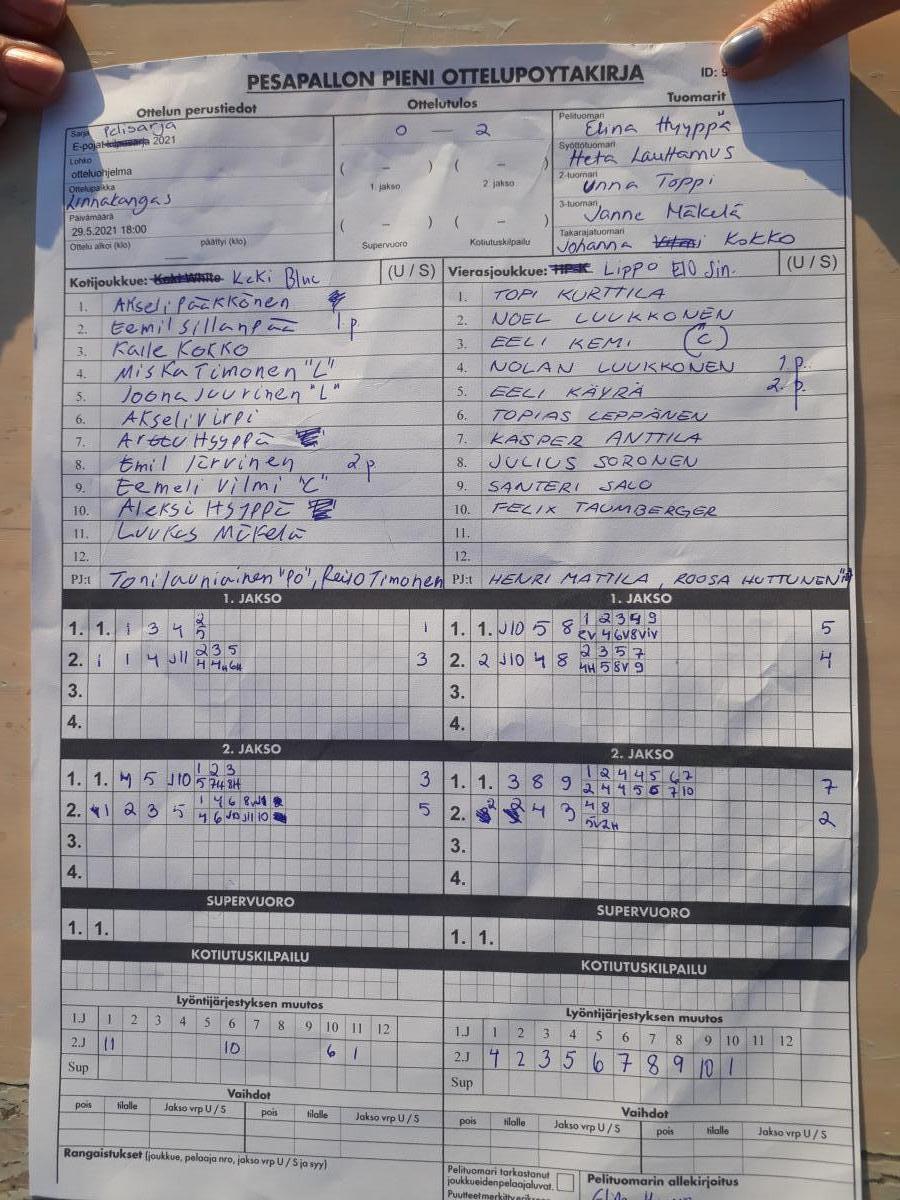 PESÄPALLON PIENI OTTELUPÖYTÄKIRJA
ID: 9
Ottelun perustiedot
Ottelutulos
Tuomarit
Sarja Pelisarja
E-pojat kilpasarja 2021
Lohko
otteluohjelma
Ottelupaikka
Linnakangas
Päivämäärä
29.5.2021 18:00
Ottelu alkoi (klo) päättyi (klo)
0 — 2
( – ) ( – )
1. jakso 2. jakso
( – ) ( – )
Supervuoro Kotiutuskilpailu
Pelituomari
Elina Hyyppä
Syöttötuomari
Heta Lauttamus
2-tuomari
Unna Toppi
3-tuomari
Janne Mäkelä
Takarajatuomari
Johanna Kokko
Kotijoukkue: KeKi White KeKi Blue (U / S)
1. Akseli Pääkkönen
2. Eemil Sillanpää 1 p.
3. Kalle Kokko
4. Miska Timonen "L"
5. Joona Juurinen "L"
6. Akseli Virpi
7. Arttu Hyyppä
8. Emil Järvinen 2 p.
9. Eemeli Vilmi "C"
10. Aleksi Hyyppä
11. Luukas Mäkelä
12.
PJ:t Toni Launiainen "PO", Reijo Timonen
Vierasjoukkue: HP-K Lippo E10 Sin. (U / S)
1. TOPI KURTTILA
2. NOEL LUUKKONEN
3. EELI KEMI (C)
4. NOLAN LUUKKONEN 1 p.
5. EELI KÄYRÄ 2. p
6. TOPIAS LEPPÄNEN
7. KASPER ANTTILA
8. JULIUS SORONEN
9. SANTERI SALO
10. FELIX TAUMBERGER
11.
12.
PJ:t HENRI MATTILA, ROOSA HUTTUNEN
1. JAKSO
1. 1. 1 3 4 2 1
5
2. 1 1 4 J11 2 3 5 3
4 4H 6H
3.
4.
1. JAKSO
1. 1. J10 5 8 1 2 3 4 9 5
2V 4 6V 8V 1V
2. 2 J10 4 8 2 3 5 7 4
4H 5 8V 9
3.
4.
2. JAKSO
1. 1. 4 5 J10 1 2 3 3
5 7H 8H
2. 1 2 3 5 1 4 6 8 5
4 6 J10 J11 10
3.
4.
2. JAKSO
1. 1. 3 8 9 1 2 4 4 5 6 7 7
2 4 4 5 6 7 10
2. 2 2 4 3 4 8 2
5V 2H
3.
4.
SUPERVUORO
1. 1.
SUPERVUORO
1. 1.
KOTIUTUSKILPAILU
KOTIUTUSKILPAILU
Lyöntijärjestyksen muutos
1.J 1 2 3 4 5 6 7 8 9 10 11 12
2.J 11 10 6 1
Sup
Lyöntijärjestyksen muutos
1.J 1 2 3 4 5 6 7 8 9 10 11 12
2.J 4 2 3 5 6 7 8 9 10 1
Sup
Vaihdot
pois tilalle Jakso vrp U / S pois tilalle Jakso vrp U / S
Vaihdot
pois tilalle Jakso vrp U / S pois tilalle Jakso vrp U / S
Rangaistukset (joukkue, pelaaja nro, jakso vrp U / S ja syy)
Pelituomari tarkastanut
joukkueiden pelaajaluvat.
Puutteet merkitty erikseen
Pelituomarin allekirjoitus